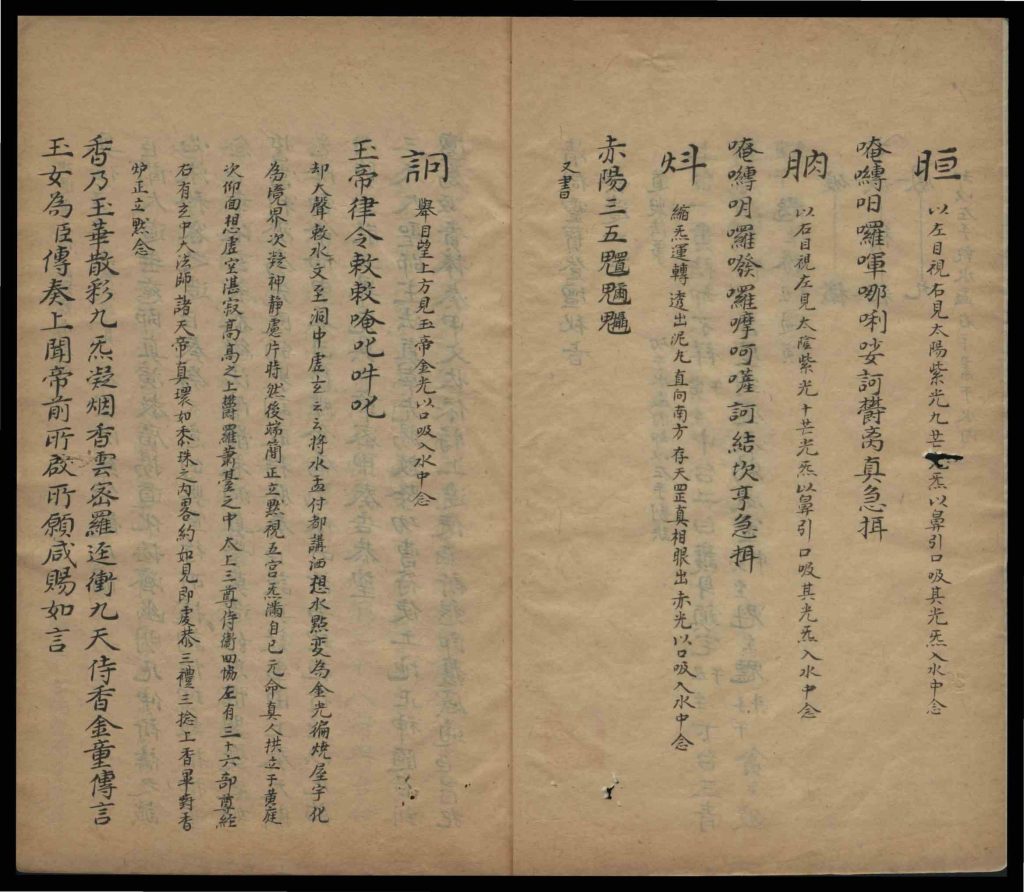 晅
以左目視右見太陽紫光九芒光炁以鼻引口吸其光炁入水中念
唵嚩咟囉㖔哪唎娑訶欝离真急揖
䏎
以右目視左見太陰紫光十芒光炁以鼻引口吸其光炁入水中念
唵嚩明囉囉嚤呵嗟訶結坎亨急揖
炓
縮炁運轉透出泥丸直向南方存天罡真相眼出赤光以口吸入水中念
赤陽三五
又書
訶
舉目望上方見玉帝金光以口吸入水中念
玉帝律令敕敕唵吒吽吒
却大聲敕水文至洞中虛玄云云將水盂付都講洒想水點変為金光徧燒屋宇化
為境界次凝神静慮片時然後端簡正立黙視五宫炁滿自己元命真人拱立于黄庭
次仰面想虛空湛寂高高之上欝羅蕭臺之中大上三尊侍衛四協左有三十六部尊經
右有玄中大法師諸天帝真環如黍珠之内畧約如見即虔恭三禮三捻上香畢對香
炉正立黙念
香乃玉華散彩九炁凝烟香雲宻羅逕衝九天侍香金童傳言
玉女為臣傳奏上聞帝前所啟所願咸賜如言